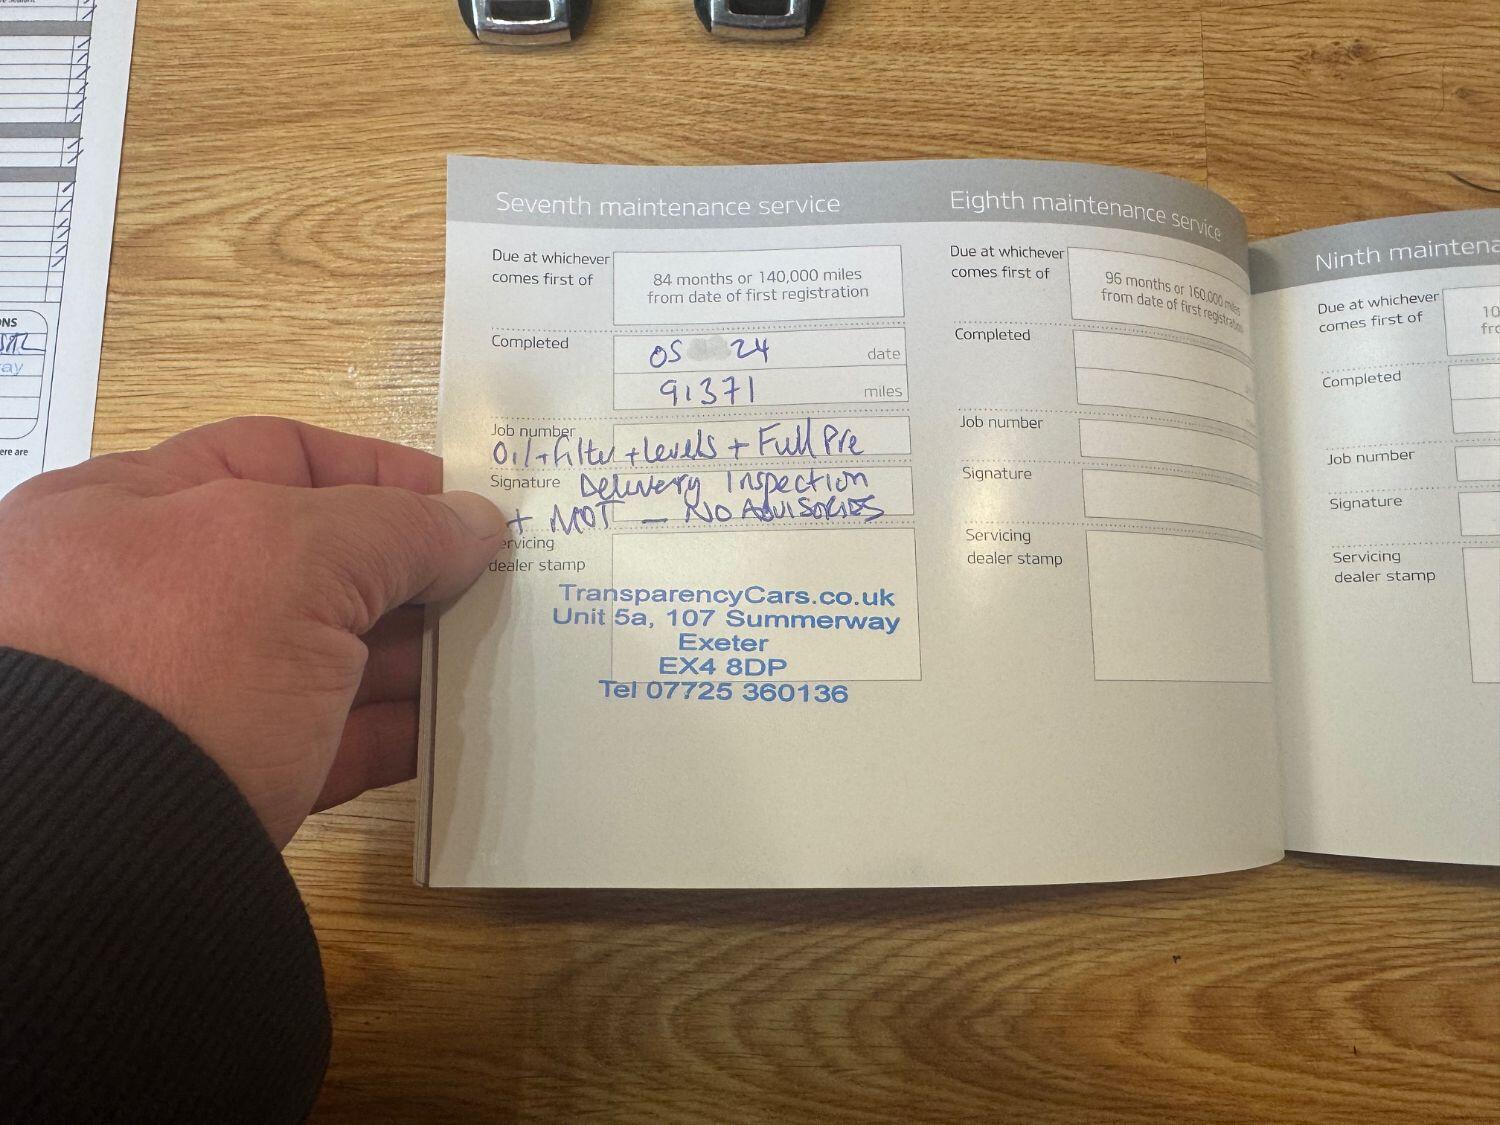 ONS
ay
ere are
Seventh maintenance service
Due at whichever
comes first of
84 months or 140,000 miles
from date of first registration
Completed
05 24
date
91371
miles
Job number
Oil+filter+Levels + Full Pre
Signature
Delivery Inspection
+ MOT - No ADVISORIES
ervicing
dealer stamp
TransparencyCars.co.uk
Unit 5a, 107 Summerway
Exeter
EX4 8DP
Tel 07725 360136
Eighth maintenance service
Due at whichever
comes first of
96 months or 160,000 miles
from date of first registration
Completed
Job number
Signature
Servicing
dealer stamp
Ninth maintena
Due at whichever
comes first of
10
fro
Completed
Job number
Signature
Servicing
dealer stamp